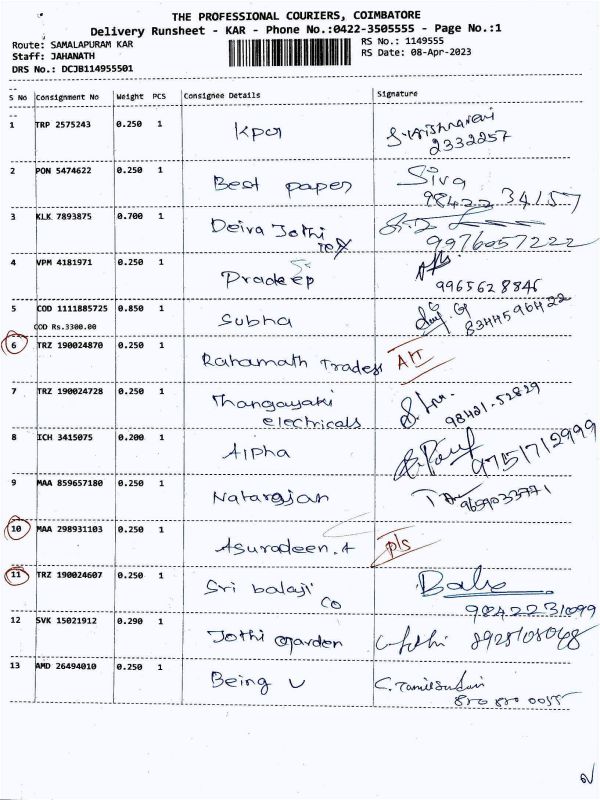 THE PROFESSIONAL COURIERS, COIMBATORE
Delivery Runsheet - KAR - Phone No.:0422-3505555 - Page No.:1
Route: SAMALAPURAM KAR
Staff: JAHANATH
DRS No.: DCJB114955501
RS No.: 1149555
RS Date: 08-Apr-2023
S No Consignment No Weight PCS Consignee Details Signature
1 TRP 2575243 0.250 1 Kpcr
2332257
2 PON 5474622 0.250 1 Best paper Siva
98422 34157
3 KLK 7893875 0.700 1 Deiva Jothi
tex 9976057222
4 VPM 4181971 0.250 1 Pradeep
9965628846
5 COD 1111885725 0.850 1 Subha
COD Rs.3300.00 8344596422
6 TRZ 190024870 0.250 1 Rahamath Trades
7 TRZ 190024728 0.250 1 Thangayaki
electricals 98421.52829
8 ICH 3415075 0.200 1 Alpha
97151712999
9 MAA 859657180 0.250 1 Natarajan
9659033771
10 MAA 298931103 0.250 1 Asuradeen.A p/s
11 TRZ 190024607 0.250 1 Sri balaji
co 9842231099
12 SVK 15021912 0.290 1 Jothi Garden
13 AMD 26494010 0.250 1 Being U
820 820 0055